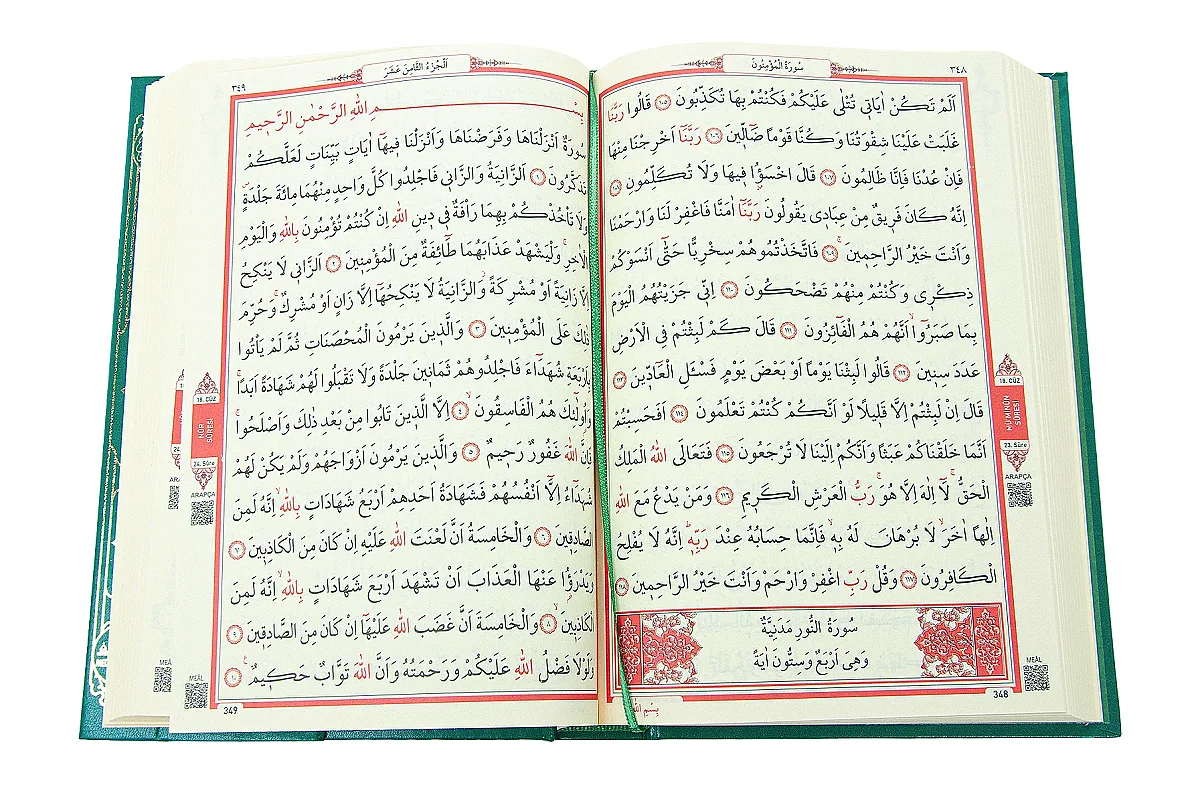 ٣٤٨
سُورَةُ الْمُؤْمِنُونَ
اَلَمْ تَكُنْ اٰيَاتٖى تُتْلٰى عَلَيْكُمْ فَكُنْتُمْ بِهَا تُكَذِّبُونَ ١٠٥ قَالُوا رَبَّنَا
غَلَبَتْ عَلَيْنَا شِقْوَتُنَا وَكُنَّا قَوْماً ضَٓالّٖينَ ١٠٦ رَبَّنَٓا اَخْرِجْنَا مِنْهَا
فَاِنْ عُدْنَا فَاِنَّا ظَالِمُونَ ١٠٧ قَالَ اخْسَؤُ۫ا فٖيهَا وَلَا تُكَلِّمُونِ ١٠٨
اِنَّهُ كَانَ فَرٖيقٌ مِنْ عِبَادٖى يَقُولُونَ رَبَّنَٓا اٰمَنَّا فَاغْفِرْ لَنَا وَارْحَمْنَا
وَاَنْتَ خَيْرُ الرَّاحِمٖينَۚ ١٠٩ فَاتَّخَذْتُمُوهُمْ سِخْرِياًّ حَتّٰٓى اَنْسَوْكُمْ
ذِكْرٖى وَكُنْتُمْ مِنْهُمْ تَضْحَكُونَ ١١٠ اِنّٖى جَزَيْتُهُمُ الْيَوْمَ
بِمَا صَبَرُٓواۙ اَنَّهُمْ هُمُ الْفَٓائِزُونَ ١١١ قَالَ كَمْ لَبِثْتُمْ فِى الْاَرْضِ
عَدَدَ سِنٖينَ ١١٢ قَالُوا لَبِثْنَا يَوْماً اَوْ بَعْضَ يَوْمٍ فَسْـَٔلِ الْعَٓادّٖينَ ١١٣
قَالَ اِنْ لَبِثْتُمْ اِلَّا قَلٖيلاً لَوْ اَنَّكُمْ كُنْتُمْ تَعْلَمُونَ ١١٤ اَفَحَسِبْتُمْ
اَنَّمَا خَلَقْنَاكُمْ عَبَثاً وَاَنَّكُمْ اِلَيْنَا لَا تُرْجَعُونَ ١١٥ فَتَعَالَى اللّٰهُ الْمَلِكُ
الْحَقُّۚ لَٓا اِلٰهَ اِلَّا هُوَۚ رَبُّ الْعَرْشِ الْكَرٖيمِ ١١٦ وَمَنْ يَدْعُ مَعَ اللّٰهِ
اِلٰهاً اٰخَرَۙ لَا بُرْهَانَ لَهُ بِهٖۙ فَاِنَّمَا حِسَابُهُ عِنْدَ رَبِّهٖؕ اِنَّهُ لَا يُفْلِحُ
الْكَافِرُونَ ١١٧ وَقُلْ رَبِّ اغْفِرْ وَارْحَمْ وَاَنْتَ خَيْرُ الرَّاحِمٖينَ ١١٨
سُورَةُ النُّورِ مَدَنِيَّةٌ
وَهِىَ اَرْبَعٌ وَسِتُّونَ اٰيَةً
348
بِسْمِ اللّٰهِ
18. CÜZ
MÜ'MİNÛN
SÛRESİ
23. Sûre
ARAPÇA
MEÂL
٣٤٩
اَلْجُزْءُ الثَّامِنَ عَشَرَ
بِسْمِ اللّٰهِ الرَّحْمٰنِ الرَّحٖيمِ
سُورَةٌ اَنْزَلْنَاهَا وَفَرَضْنَاهَا وَاَنْزَلْنَا فٖيهَٓا اٰيَاتٍ بَيِّنَاتٍ لَعَلَّكُمْ
تَذَكَّرُونَ ١ اَلزَّانِيَةُ وَالزَّانٖى فَاجْلِدُوا كُلَّ وَاحِدٍ مِنْهُمَا مِائَةَ جَلْدَةٍۖ
وَلَا تَأْخُذْكُمْ بِهِمَا رَأْفَةٌ فٖى دٖينِ اللّٰهِ اِنْ كُنْتُمْ تُؤْمِنُونَ بِاللّٰهِ وَالْيَوْمِ
الْاٰخِرِۚ وَلْيَشْهَدْ عَذَابَهُمَا طَٓائِفَةٌ مِنَ الْمُؤْمِنٖينَ ٢ اَلزَّانٖى لَا يَنْكِحُ
اِلَّا زَانِيَةً اَوْ مُشْرِكَةًۘ وَالزَّانِيَةُ لَا يَنْكِحُهَٓا اِلَّا زَانٍ اَوْ مُشْرِكٌۚ وَحُرِّمَ
ذٰلِكَ عَلَى الْمُؤْمِنٖينَ ٣ وَالَّذٖينَ يَرْمُونَ الْمُحْصَنَاتِ ثُمَّ لَمْ يَأْتُوا
بِاَرْبَعَةِ شُهَدَٓاءَ فَاجْلِدُوهُمْ ثَمَانٖينَ جَلْدَةً وَلَا تَقْبَلُوا لَهُمْ شَهَادَةً اَبَداًۚ
وَاُو۬لٰٓئِكَ هُمُ الْفَاسِقُونَۙ ٤ اِلَّا الَّذٖينَ تَابُوا مِنْ بَعْدِ ذٰلِكَ وَاَصْلَحُواۚ
فَاِنَّ اللّٰهَ غَفُورٌ رَحٖيمٌ ٥ وَالَّذٖينَ يَرْمُونَ اَزْوَاجَهُمْ وَلَمْ يَكُنْ لَهُمْ
شُهَدَٓاءُ اِلَّٓا اَنْفُسُهُمْ فَشَهَادَةُ اَحَدِهِمْ اَرْبَعُ شَهَادَاتٍ بِاللّٰهِۙ اِنَّهُ لَمِنَ
الصَّادِقٖينَ ٦ وَالْخَامِسَةُ اَنَّ لَعْنَتَ اللّٰهِ عَلَيْهِ اِنْ كَانَ مِنَ الْكَاذِبٖينَ ٧
وَيَدْرَؤُ۬ا عَنْهَا الْعَذَابَ اَنْ تَشْهَدَ اَرْبَعَ شَهَادَاتٍ بِاللّٰهِۙ اِنَّهُ لَمِنَ
الْكَاذِبٖينَۙ ٨ وَالْخَامِسَةَ اَنَّ غَضَبَ اللّٰهِ عَلَيْهَٓا اِنْ كَانَ مِنَ الصَّادِقٖينَ ٩
وَلَوْلَا فَضْلُ اللّٰهِ عَلَيْكُمْ وَرَحْمَتُهُ وَاَنَّ اللّٰهَ تَوَّابٌ حَكٖيمٌۚ ١٠
349
18. CÜZ
NÛR
SÛRESİ
24. Sûre
ARAPÇA
MEÂL
MEÂL